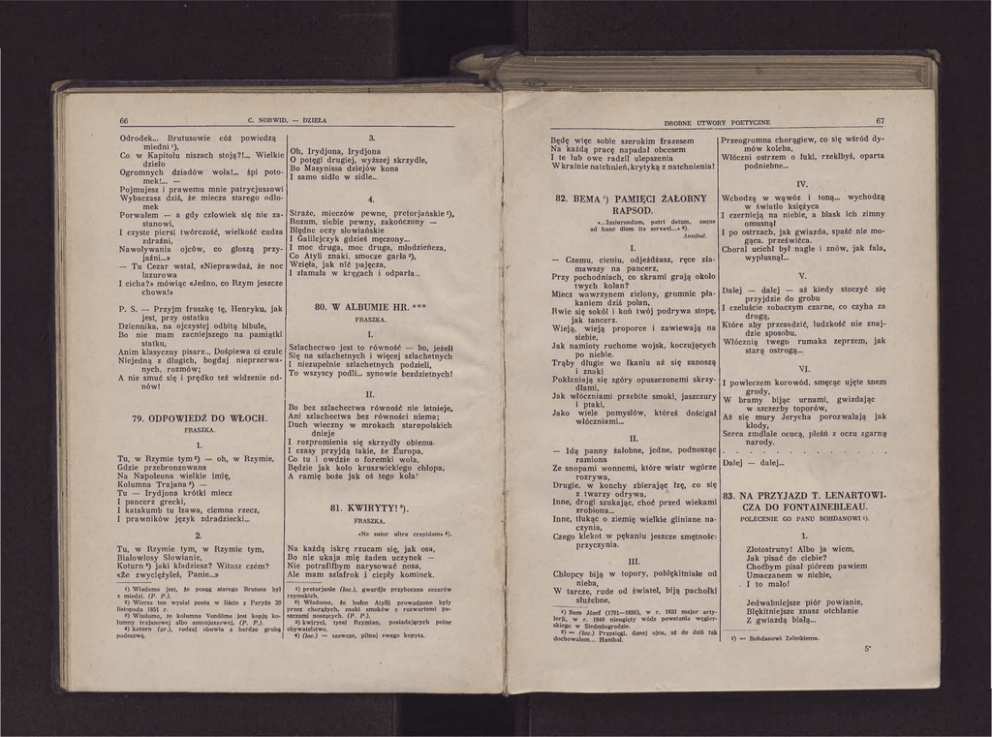 66
C. NORWID. — DZIEŁA
Odrodek... Brutusowie cóż powiedzą
miedni ¹),
Co w Kapitolu niszach stoją?!... Wielkie
dzieło
Ogromnych dziadów woła!... śpi poto-
mek!... —
Pojmujesz i prawemu mnie patrycjuszowi
Wybaczasz dziś, że miecza starego odło-
mek
Porwałem — a gdy człowiek się nie za-
stanowi,
I czyste piersi twórczość, wielkość cudza
zdraźni,
Nawoływania ojców, co głoszą przy-
jaźni...»
— Tu Cezar wstał, «Nieprawdaż, że noc
lazurowa
I cicha?» mówiąc «Jedno, co Rzym jeszcze
chowa!»
P. S. — Przyjm fraszkę tę, Henryku, jak
jest, przy ostatku
Dziennika, na ojczystej odbitą bibule,
Bo nie mam zacniejszego na pamiątki
statku,
Anim klasyczny pisarz... Dośpiewa ci czule
Niejedną z długich, bogdaj nieprzerwa-
nych, rozmów;
A nie smuć się i prędko też widzenie od-
nów!
79. ODPOWIEDŹ DO WŁOCH.
FRASZKA.
1.
Tu, w Rzymie tym ²) — oh, w Rzymie,
Gdzie przebronzowana
Na Napoleona wielkie imię,
Kolumna Trajana ³) —
Tu — Irydjona krótki miecz
I pancerz grecki,
I katakumb tu łzawa, ciemna rzecz,
I prawników język zdradziecki...
2.
Tu, w Rzymie tym, w Rzymie tym,
Białowłosy Słowianie,
Koturn ⁴) jaki kładziesz? Witasz czém?
«Że zwyciężyłeś, Panie...»
¹) Wiadomo jest, że posąg starego Brutusa był
z miedzi. (P. P.).
²) Wiersz ten wysłał poeta w liście z Paryża 20
listopada 1851 r.
³) Wiadomo, że kolumna Vendôme jest kopją ko-
lumny trajanowej albo antonjuszowej. (P. P.).
⁴) koturn (gr.), rodzaj obuwia z bardzo grubą
podeszwą.
3.
Oh, Irydjona, Irydjona
O potęgi drugiej, wyższej skrzydle,
Bo Masynissa dziejów kona
I samo sidło w sidle...
4.
Straże, mieczów pewne, pretorjańskie ⁵),
Rozum, siebie pewny, zakończony —
Błędne oczy słowiańskie
I Galilejczyk gdzieś męczony...
I moc druga, moc druga, młodzieńcza,
Co Atyli znaki, smocze garła ⁶),
Wzięła, jak nić pajęcza,
I złamała w kręgach i odparła...
80. W ALBUMIE HR. ***
FRASZKA.
I.
Szlachectwo jest to równość — bo, jeżeli
Się na szlachetnych i więcej szlachetnych
I niezupełnie szlachetnych podzieli,
To wszyscy podli... synowie bezdzietnych!
II.
Bo bez szlachectwa równość nie istnieje,
Ani szlachectwa bez równości niema;
Duch wieczny w mrokach staropolskich
dnieje
I rozpromienia się skrzydły obiema.
I czasy przyjdą takie, że Europa,
Co tu i owdzie o foremki woła,
Będzie jak koło kruszwickiego chłopa,
A ramię boże jak oś tego koła!
81. KWIRYTY! ⁷).
FRASZKA.
«Ne sutor ultra crepidam» ⁸).
Na każdą iskrę rzucam się, jak osa,
Bo nie ukąja mię żaden uczynek —
Nie potrafiłbym narysować nosa,
Ale mam szlafrok i ciepły kominek.
⁵) pretorjanie (łac.), gwardja przyboczna cezarów
rzymskich.
⁶) Wiadomo, że hufce Atylli prowadzone były
przez chorążych, znaki smoków z rozwartemi pa-
szczami noszących. (P. P.).
⁷) kwiryci, tytuł Rzymian, posiadających pełne
obywatelstwo.
⁸) (łac.) — szewcze, pilnuj swego kopyta.
DROBNE UTWORY POETYCZNE
67
Będę więc sobie szerokim frazesem
Na każdą pracę napadał obcesem
I te lub owe radził ulepszenia
W krainie natchnień, krytyką z natchnienia!
82. BEMA ¹) PAMIĘCI ŻAŁOBNY
RAPSOD.
«...Iusiurandum, patri datum, usque
ad hanc diem ita servavi...» ²).
Annibal.
I.
— Czemu, cieniu, odjeżdżasz, ręce zła-
mawszy na pancerz,
Przy pochodniach, co skrami grają około
twych kolan?
Miecz wawrzynem zielony, gromnic pła-
kaniem dziś polan,
Rwie się sokół i koń twój podrywa stopę,
jak tancerz.
Wieją, wieją proporce i zawiewają na
siebie,
Jak namioty ruchome wojsk, koczujących
po niebie.
Trąby długie we łkaniu aż się zanoszą
i znaki
Pokłaniają się zgóry opuszczonemi skrzy-
dłami,
Jak włóczniami przebite smoki, jaszczury
i ptaki,
Jako wiele pomysłów, któreś dościgał
włóczniami...
II.
— Idą panny żałobne, jedne, podnosząc
ramiona
Ze snopami wonnemi, które wiatr wgórze
rozrywa,
Drugie, w konchy zbierając łzę, co się
z twarzy odrywa,
Inne, drogi szukając, choć przed wiekami
zrobiona...
Inne, tłukąc o ziemię wielkie gliniane na-
czynia,
Czego klekot w pękaniu jeszcze smętności
przyczynia.
III.
Chłopcy biją w topory, pobłękitniałe od
nieba,
W tarcze, rude od świateł, biją pachołki
służebne,
¹) Bem Józef (1791—1850), w r. 1831 major arty-
lerji, w r. 1848 nieugięty wódz powstania węgier-
skiego w Siedmiogrodzie.
²) — (łac.) Przysięgi, danej ojcu, aż do dziś tak
dochowałem... Hanibal.
Przeogromna chorągiew, co się wśród dy-
mów koleba,
Włóczni ostrzem o łuki, rzekłbyś, oparta
podniebne...
IV.
Wchodzą w wąwóz i toną... wychodzą
w światło księżyca
I czernieją na niebie, a blask ich zimny
omusnął
I po ostrzach, jak gwiazda, spaść nie mo-
gąca, prześwieca.
Chorał ucichł był nagle i znów, jak fala,
wyplusnął...
V.
Dalej — dalej — aż kiedy stoczyć się
przyjdzie do grobu
I czeluście zobaczym czarne, co czyha za
drogą,
Które aby przesadzić, ludzkość nie znaj-
dzie sposobu.
Włócznią twego rumaka zeprzem, jak
starą ostrogą...
VI.
I powleczem korowód, smęcąc ujęte snem
grody,
W bramy bijąc urnami, gwizdając
w szczerby toporów,
Aż się mury Jerycha porozwalają jak
kłody,
Serca zmdlałe ocucą, pleśń z oczu zgarną
narody.
. . . . . . . . . . . . . . .
Dalej — dalej...
83. NA PRZYJAZD T. LENARTOWI-
CZA DO FONTAINEBLEAU.
POLECENIE GO PANU BOHDANOWI ¹).
1.
Złotostruny! Albo ja wiem,
Jak pisać do ciebie?
Choćbym pisał piórem pawiem
Umaczanem w niebie,
I to mało!
Jedwabniejsze piór powianie,
Błękitniejsze znasz otchłanie
Z gwiazdą białą...
¹) — Bohdanowi Zaleskiemu.
5*